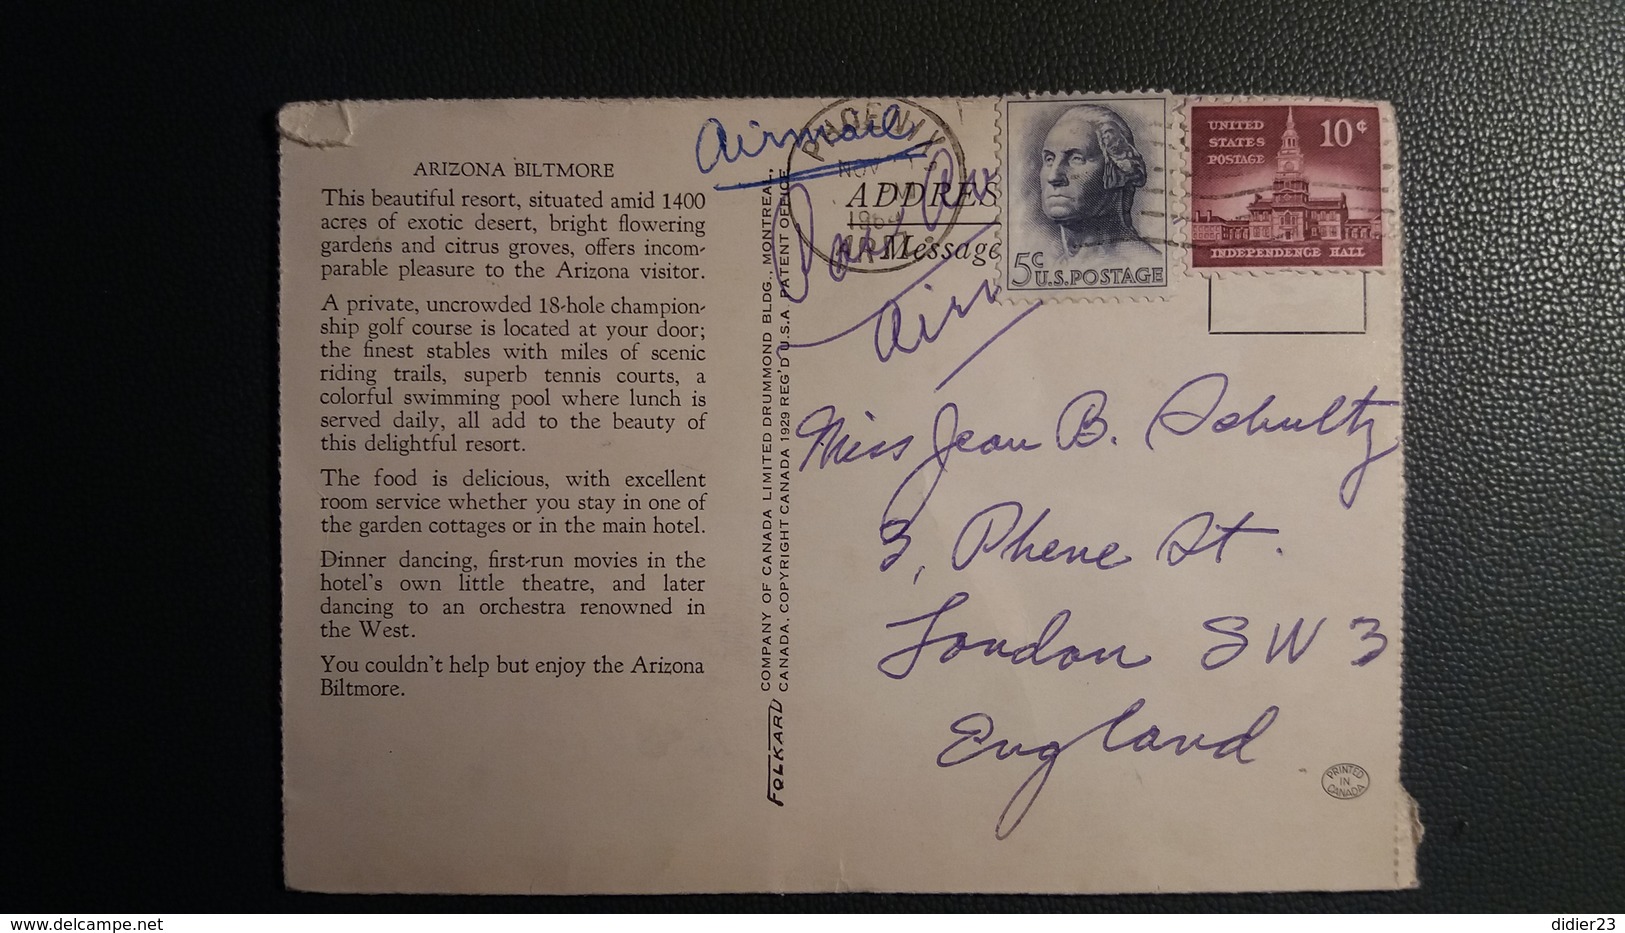 ARIZONA BILTMORE
This beautiful resort, situated amid 1400
acres of exotic desert, bright flowering
gardens and citrus groves, offers incom-
parable pleasure to the Arizona visitor.
A private, uncrowded 18-hole champion-
ship golf course is located at your door;
the finest stables with miles of scenic
riding trails, superb tennis courts, a
colorful swimming pool where lunch is
served daily, all add to the beauty of
this delightful resort.
The food is delicious, with excellent
room service whether you stay in one of
the garden cottages or in the main hotel.
Dinner dancing, first-run movies in the
hotel's own little theatre, and later
dancing to an orchestra renowned in
the West.
You couldn't help but enjoy the Arizona
Biltmore.
FOLKARD COMPANY OF CANADA LIMITED DRUMMOND BLDG., MONTREAL,
CANADA. COPYRIGHT CANADA 1929 REG'D U.S.A. PATENT OFFICE
Airmail
PHOENIX
NOV
1964
ARIZ.
ADDRES
Message
Air
5c
U.S. POSTAGE
UNITED
STATES
POSTAGE
10¢
INDEPENDENCE HALL
Miss Jean B. Schultz
3, Phene St.
London SW 3
England
PRINTED
IN
CANADA
didier23